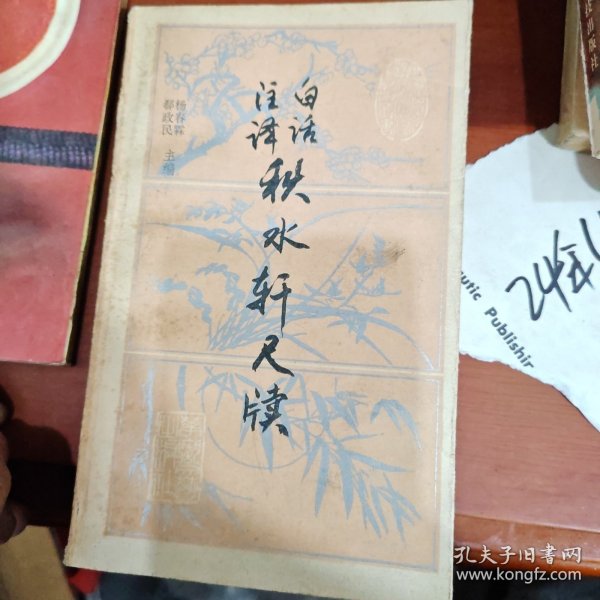 白话
注译
秋水轩尺牍
杨春霖
郗政民 主编
24年1
utic Publishir
出版社
孔夫子旧书网
www.kongfz.com